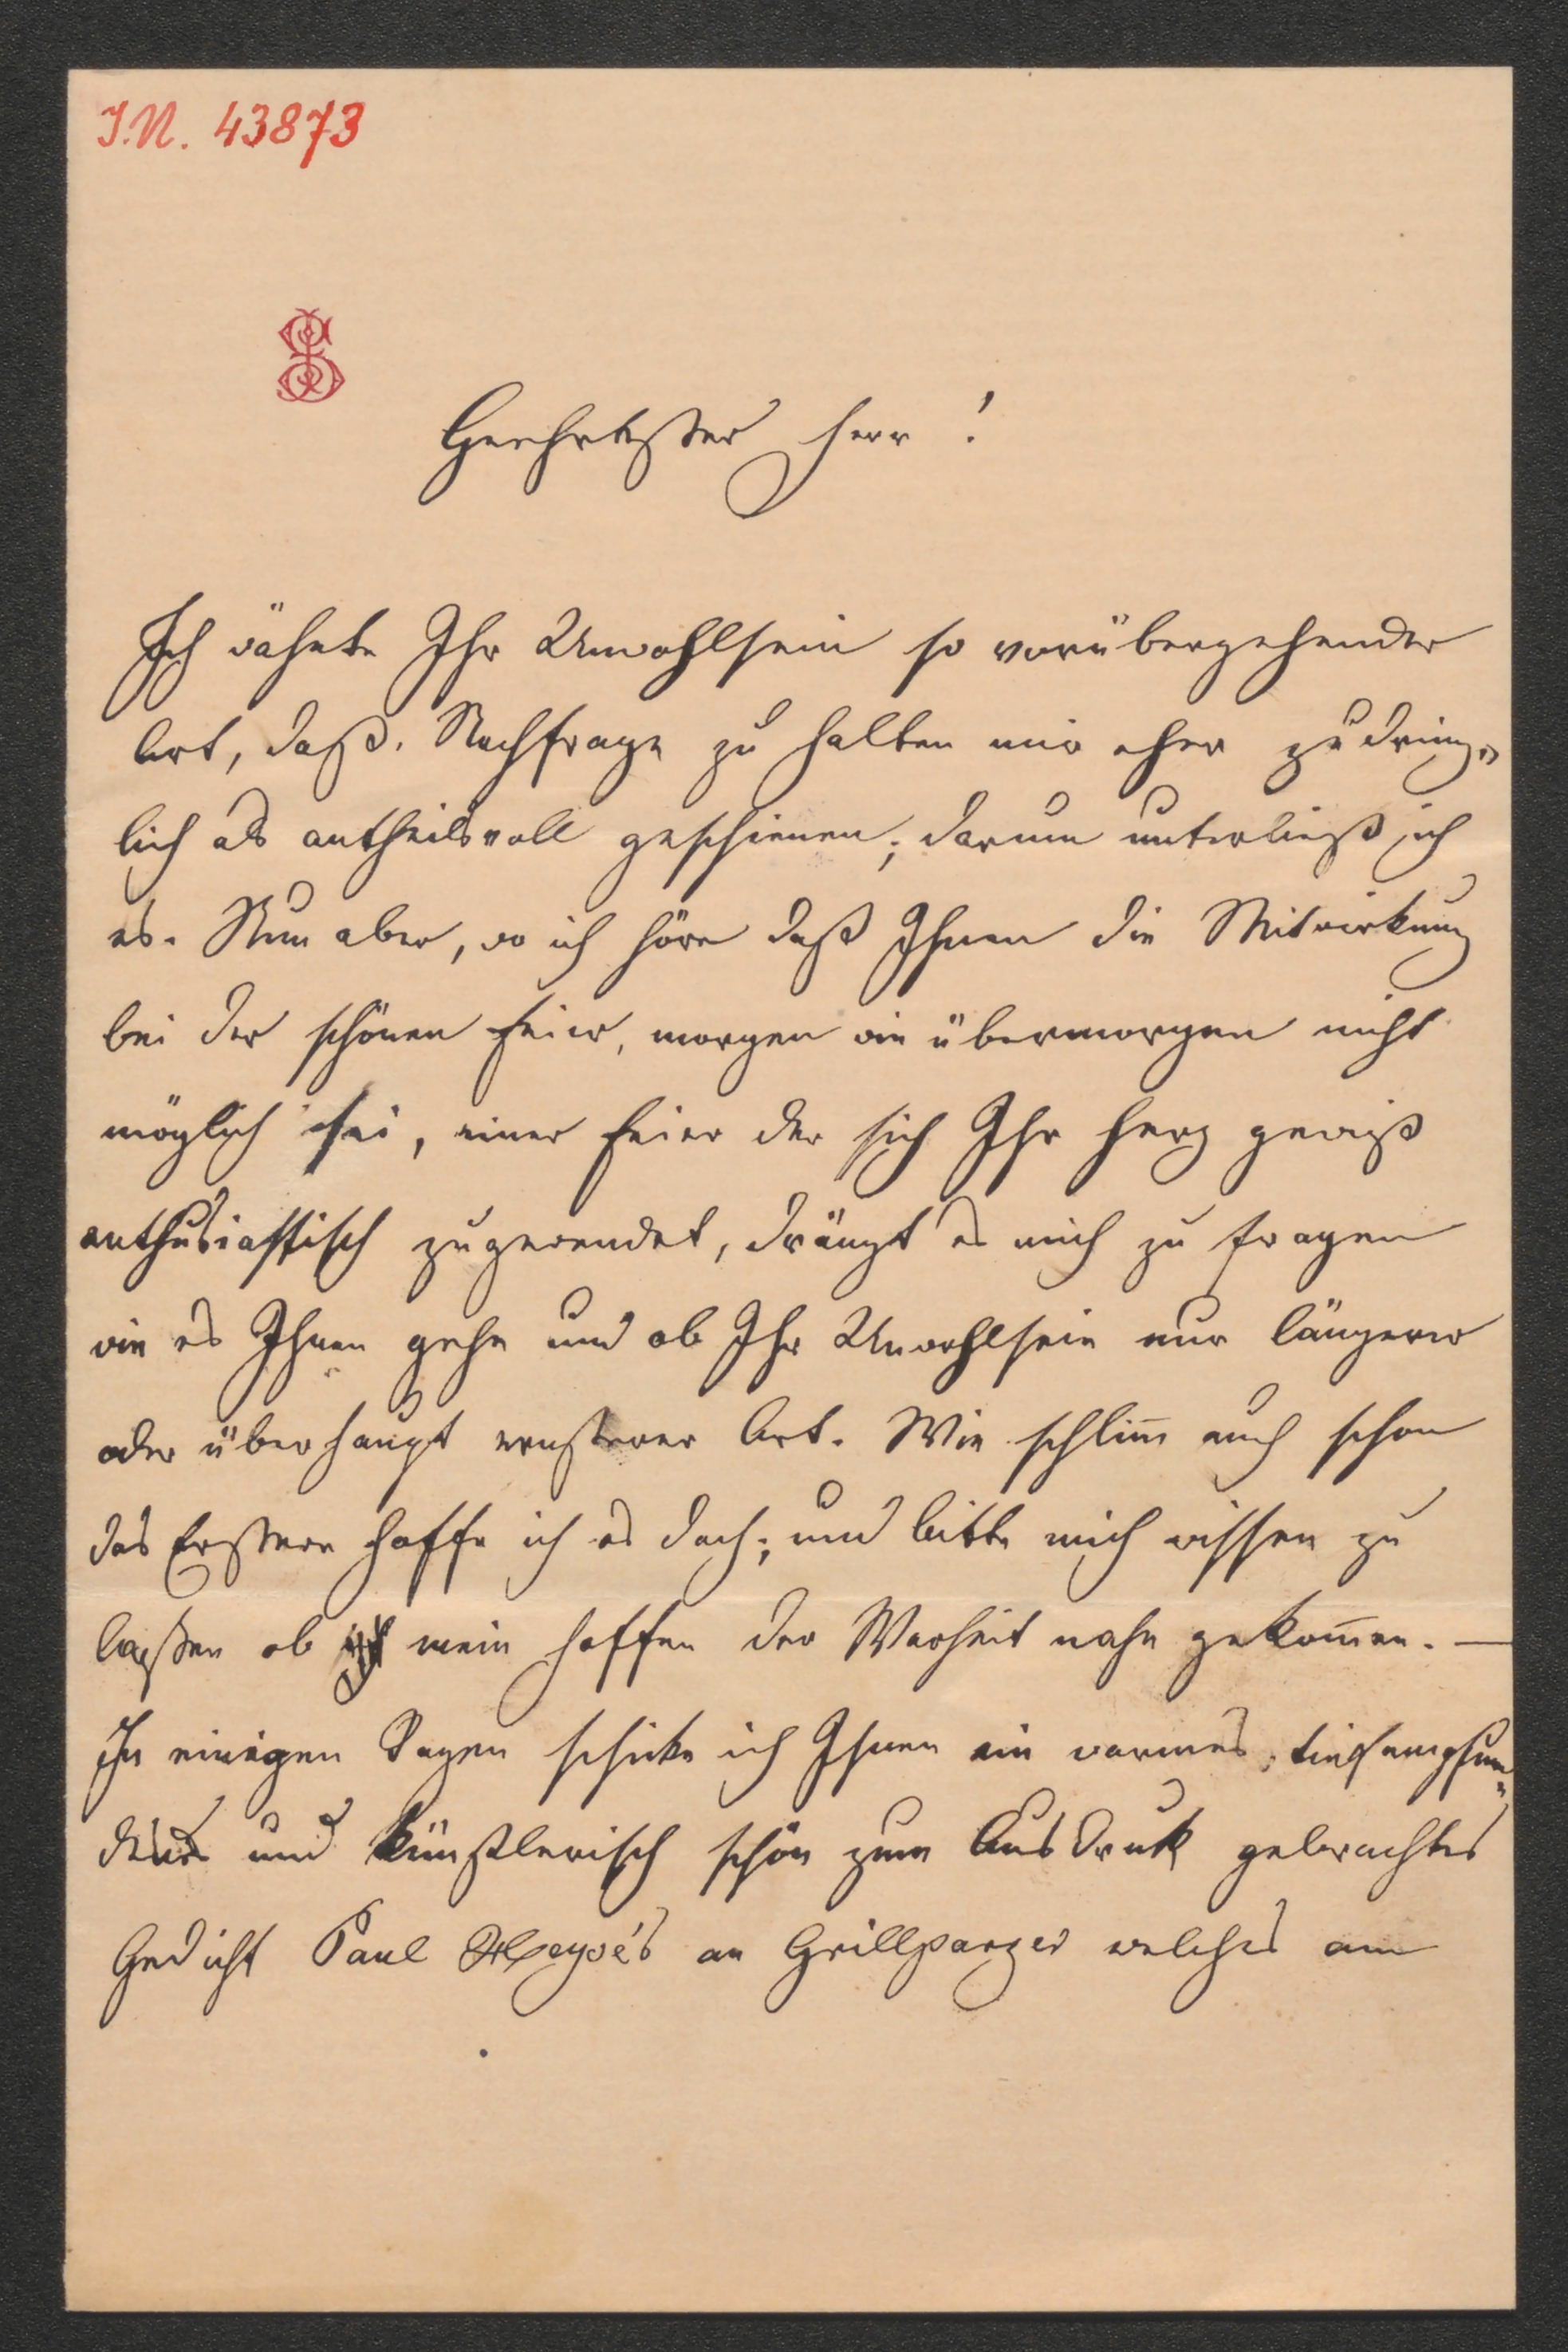 I.N. 43873
Geehrtester Herr!
Ich wähnte Ihr Unwohlsein so vorübergehender
Art, daß, Nachfrage zu halten mir eher zudring„
lich als antheilsvoll geschienen; darum unterließ ich
es. Nun aber, wo ich höre daß Ihnen die Mitwirkung
bei der schönen Feier, morgen wie übermorgen nicht
möglich sei, einer Feier der sich Ihr Herz gewiß
enthusiastisch zugewendet, drängt es mich zu fragen
wie es Ihnen gehe und ob Ihr Unwohlsein nur längerer
oder überhaupt ernsterer Art. Wie schlim̅ auch schon
das Erstere hoffe ich es doch; und bitte mich wissen zu
laßen ob mein Hoffen der Warheit nahe gekom̅en. —
In einigen Tagen schicke ich Ihnen ein warmes, tiefempfun„
denes und künstlerisch schön zum Ausdruk gebrachtes
Gedicht Paul Heyse's an Grillparzer welches am